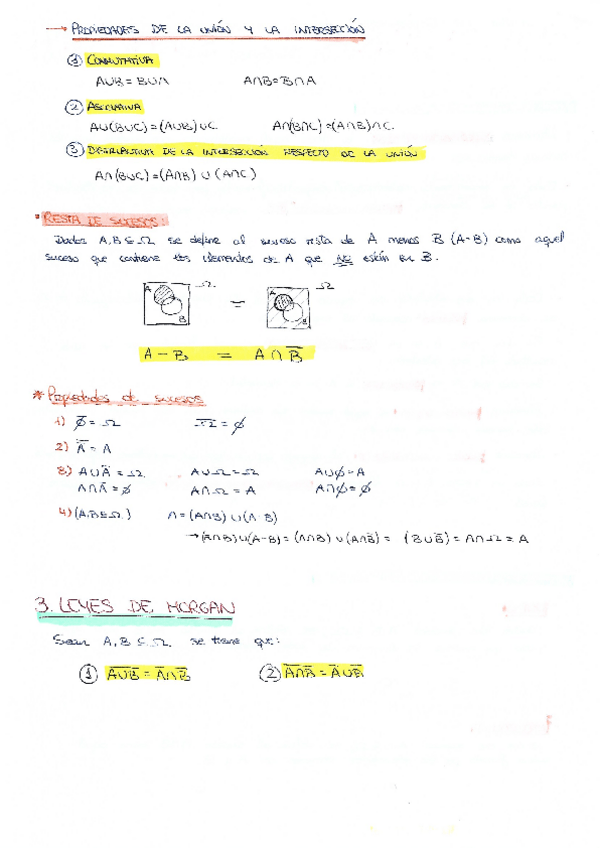 → PROPIEDADES DE LA UNIÓN Y LA INTERSECCIÓN
① CONMUTATIVA
A∪B = B∪A A∩B = B∩A
② ASOCIATIVA
A∪(B∪C) = (A∪B)∪C A∩(B∩C) = (A∩B)∩C.
③ DISTRIBUTIVA DE LA INTERSECCIÓN RESPECTO DE LA UNIÓN
A∩(B∪C) = (A∩B) ∪ (A∩C)
* RESTA DE SUCESOS:
Dados A, B ⊆ Ω se define el suceso resta de A menos B (A-B) como aquel
suceso que contiene los elementos de A que NO están en B.
A B Ω = A B Ω
A - B = A ∩ B̅
* Propiedades de sucesos
1) ∅̅ = Ω Ω̅ = ∅
2) A̿ = A
3) A∪A̅ = Ω. A∪Ω = Ω A∪∅ = A
A∩A̅ = ∅ A∩Ω = A A∩∅ = ∅
4) (A,B⊆Ω) A = (A∩B) ∪ (A-B)
→ (A∩B)∪(A-B) = (A∩B) ∪ (A∩B̅) = (B∪B̅) = A∩Ω = A
3. LEYES DE MORGAN
Sean A, B ⊆ Ω. se tiene que:
① A̅∪̅B̅ = A̅∩B̅ ②